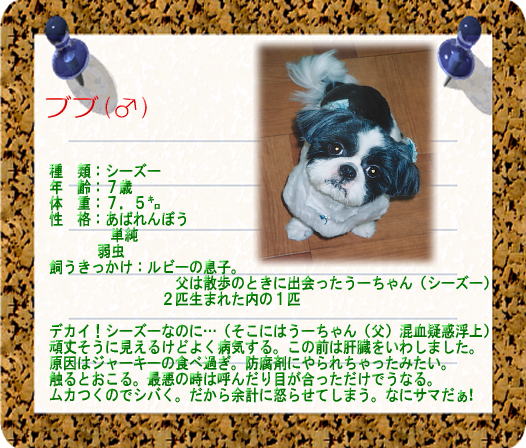 ブブ(♂)
種　類：シーズー
年　齢：７歳
体　重：７．５㌔
性　格：あばれんぼう
単純
弱虫
飼うきっかけ：ルビーの息子。
父は散歩のときに出会ったうーちゃん（シーズー）
２匹生まれた内の１匹
デカイ！シーズーなのに…（そこにはうーちゃん（父）混血疑惑浮上）
頑丈そうに見えるけどよく病気する。この前は肝臓をいわしました。
原因はジャーキーの食べ過ぎ。防腐剤にやられちゃったみたい。
触るとおこる。最悪の時は呼んだり目が合っただけでうなる。
ムカつくのでシバく。だから余計に怒らせてしまう。なにサマだぁ!